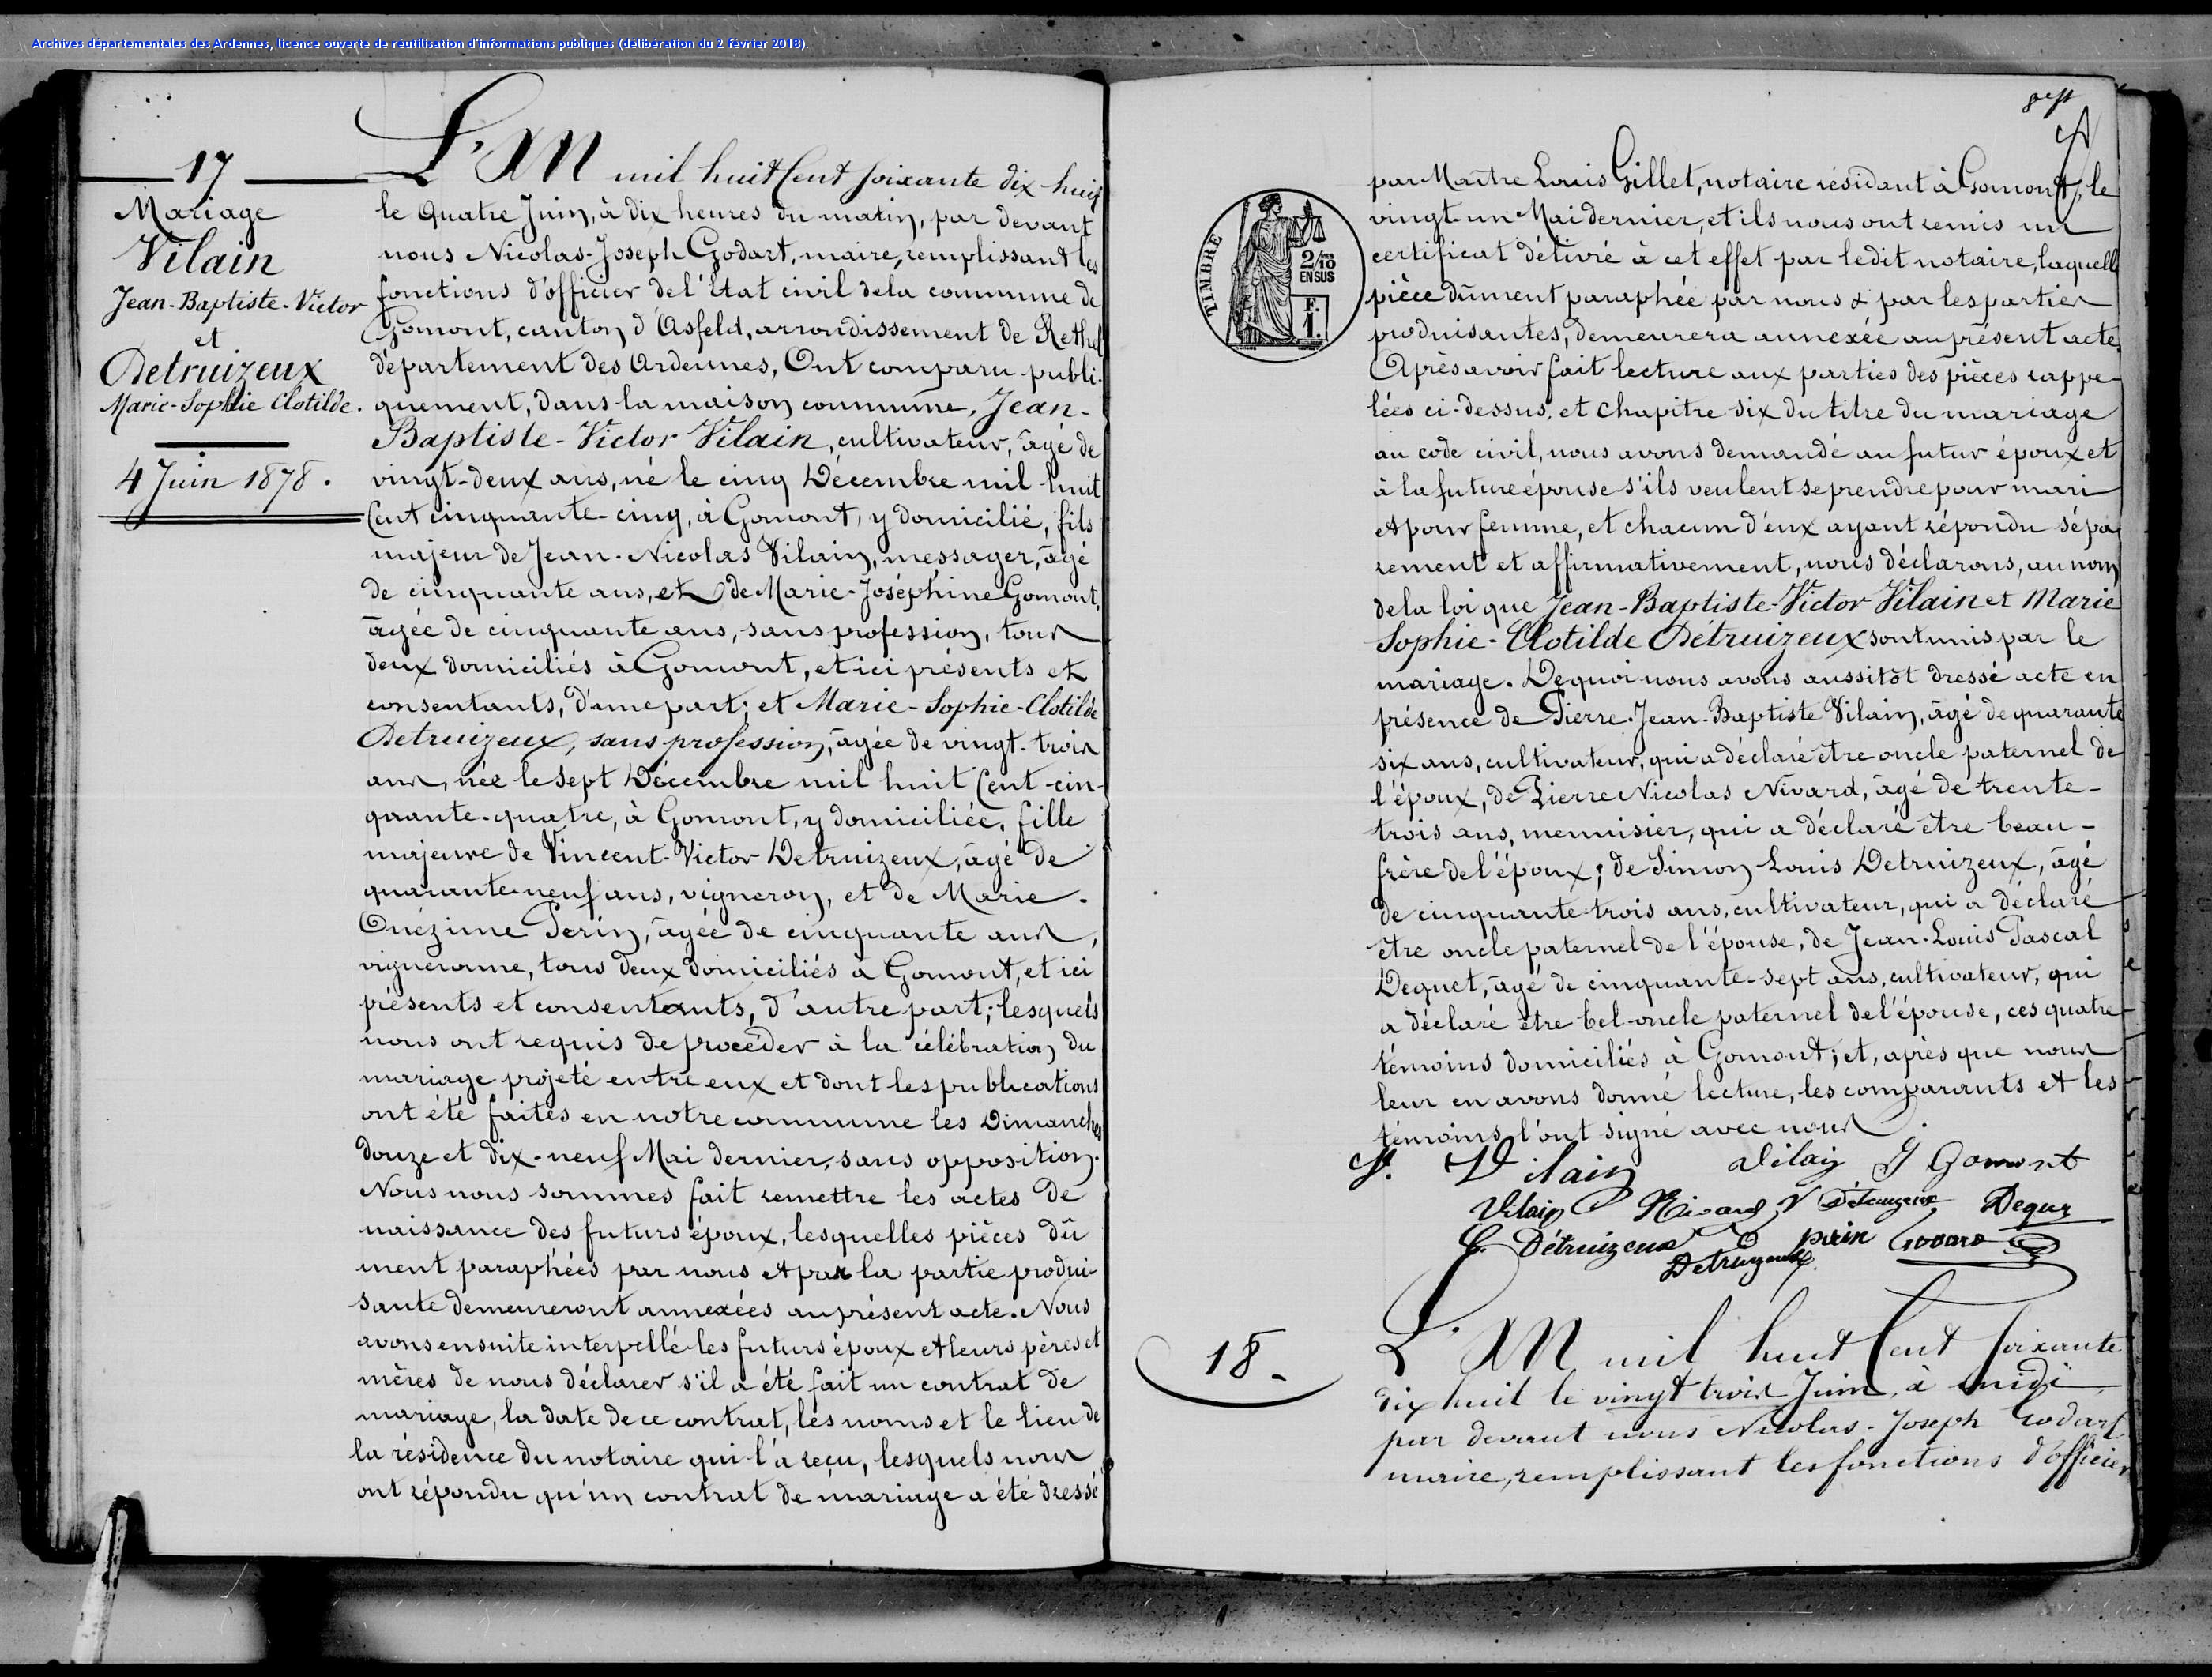 Archives départementales des Ardennes, licence ouverte de réutilisation d'informations publiques (délibération du 2 février 2018).
17
Mariage
Vilain
Jean-Baptiste-Victor
et
Detruizeux
Marie-Sophie Clotilde.
4 Juin 1878.
L'An mil huit Cent soixante dix huit
le Quatre Juin, à dix heures du matin, par devant
nous Nicolas-Joseph Godart, maire, remplissant les
fonctions d'officier de l'Etat civil de la commune de
Gomont, canton d'Asfeld, arrondissement de Rethel
département des Ardennes, Ont comparu publi-
quement, dans la maison commune, Jean-
Baptiste-Victor Vilain, cultivateur, âgé de
vingt-deux ans, né le cinq Décembre mil huit
Cent cinquante-cinq, à Gomont, y domicilié, fils
majeur de Jean-Nicolas Vilain, messager, âgé
de cinquante ans, et de Marie-Joséphine Gomont,
âgée de cinquante ans, sans profession, tous
deux domiciliés à Gomont, et ici présents et
consentants, d'une part; et Marie-Sophie-Clotilde
Detruizeux, sans profession, âgée de vingt-trois
ans, née le sept Décembre mil huit Cent-cin-
quante-quatre, à Gomont, y domiciliée, fille
majeure de Vincent-Victor Detruizeux, âgé de
quarante-neuf ans, vigneron, et de Marie-
Onézime Perin, âgée de cinquante ans,
vigneronne, tous deux domiciliés à Gomont, et ici
présents et consentants, d'autre part; lesquels
nous ont requis de procéder à la célébration du
mariage projeté entre eux et dont les publications
ont été faites en notre commune les Dimanches
douze et dix-neuf Mai dernier, sans opposition.
Nous nous sommes fait remettre les actes de
naissance des futurs époux, lesquelles pièces dû
ment paraphées par nous et par la partie produi-
sante demeureront annexées au présent acte. Nous
avons ensuite interpellé les futurs époux et leurs pères et
mères de nous déclarer s'il a été fait un contrat de
mariage, la date de ce contrat, les noms et le lieu de
la résidence du notaire qui l'a reçu, lesquels nous
ont répondu qu'un contrat de mariage a été dressé
TIMBRE
2/10
EN SUS
F.
1.
par Maître Louis Gillet, notaire résidant à Gomont, le
vingt-un Mai dernier, et ils nous ont remis un
certificat délivré à cet effet par ledit notaire, laquelle
pièce dûment paraphée par nous & par les parties
produisantes, demeurera annexée au présent acte.
Après avoir fait lecture aux parties des pièces rappe-
lées ci-dessus, et chapitre six du titre du mariage
au code civil, nous avons demandé au futur époux et
à la future épouse s'ils veulent se prendre pour mari
et pour femme, et chacun d'eux ayant répondu sépa
rement et affirmativement, nous déclarons, au nom
de la loi que Jean-Baptiste-Victor Vilain et Marie
Sophie-Clotilde Détruizeux sont unis par le
mariage. De quoi nous avons aussitôt dressé acte en
présence de Pierre-Jean-Baptiste Vilain, âgé de quarante
six ans, cultivateur, qui a déclaré être oncle paternel de
l'époux, de Pierre Nicolas Nivard, âgé de trente-
trois ans, menuisier, qui a déclaré être beau-
frère de l'époux; de Simon-Louis Detruizeux, âgé
de cinquante-trois ans, cultivateur, qui a déclaré
être oncle paternel de l'épouse, de Jean-Louis Pascal
Dequet, âgé de cinquante-sept ans, cultivateur, qui
a déclaré être bel-oncle paternel de l'épouse, ces quatre
témoins domiciliés à Gomont; et, après que nous
leur en avons donné lecture, les comparants et les
témoins l'ont signé avec nous.
Vilain Vilain J Gomont
Vilain Nivard V Détruizeux
C. Détruizeux O perin Godart
Detruizeux
18.
L'An mil huit Cent soixante
dix huit le vingt trois Juin, à midi
par devant nous Nicolas-Joseph Godart
maire, remplissant les fonctions d'officier